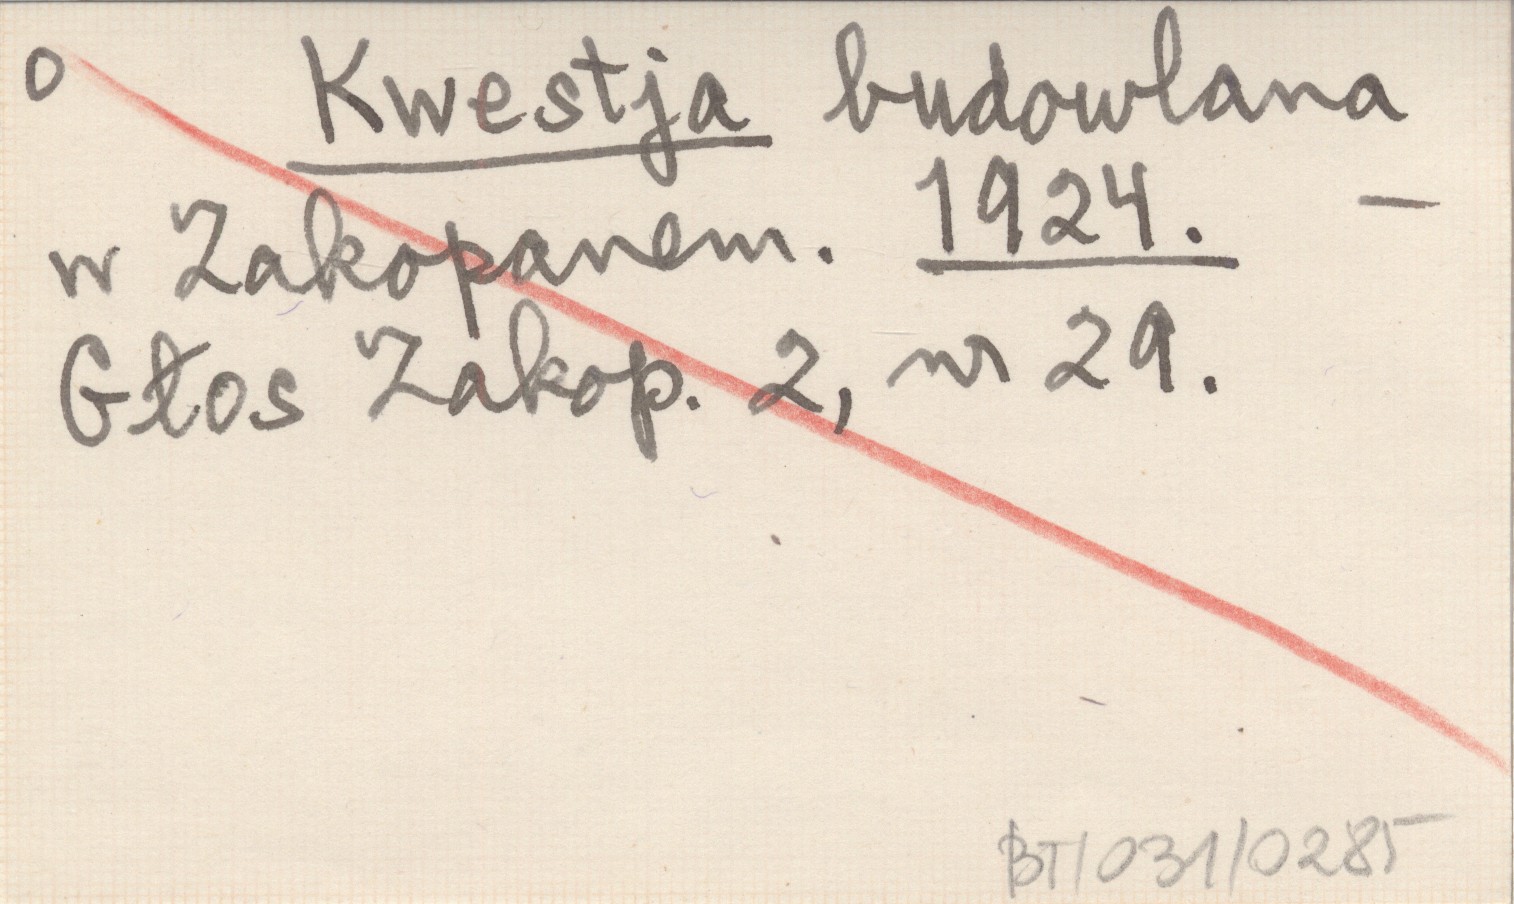 o Kwestja budowlana
w Zakopanem. 1924. —
Głos Zakop. 2, nr 29.
BT/031/0285